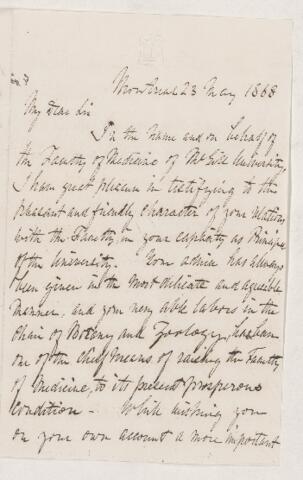 Montreal 23 May 1868
My Dear Sir
In the name and on behalf of
the Faculty of Medicine of McGill University,
I have great pleasure in testifying to the
pleasant and friendly character of your relations
with the Faculty, in your capacity as Principal
of the University. Your advice has always
been given in the most delicate and agreeable
manner, and your very able labors in the
Chair of Botany and Zoology, has been
one of the chief means of raising the Faculty
of Medicine, to its present prosperous
Condition - While wishing you
on your own account a more important